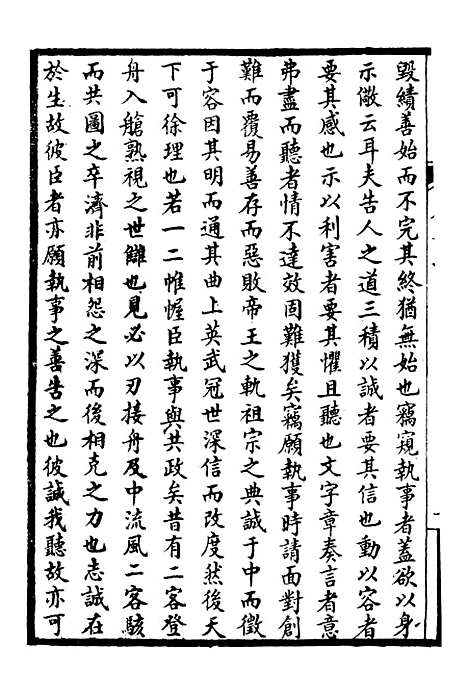 毀績善始而不完其終猶無始也竊窺執事者蓋欲以身
示儆云耳夫告人之道三積以誠者要其信也動以容者
要其感也示以利害者要其懼且聽也文字章奏言者意
弗盡而聽者情不達效固難獲矣竊願執事時請面對創
難而覆易善存而惡敗帝王之軌祖宗之典誠于中而徵
于容因其明而通其曲上英武冠世深信而改度然後天
下可徐理也若一二帷幄臣執事與共政矣昔有二客登
舟入艙熟視之世讎也見必以刃接舟及中流風二客駭
而共圖之卒濟非前相怨之深而後相克之力也志誠在
於生故彼臣者亦願執事之善告之也彼誠我聽故亦可